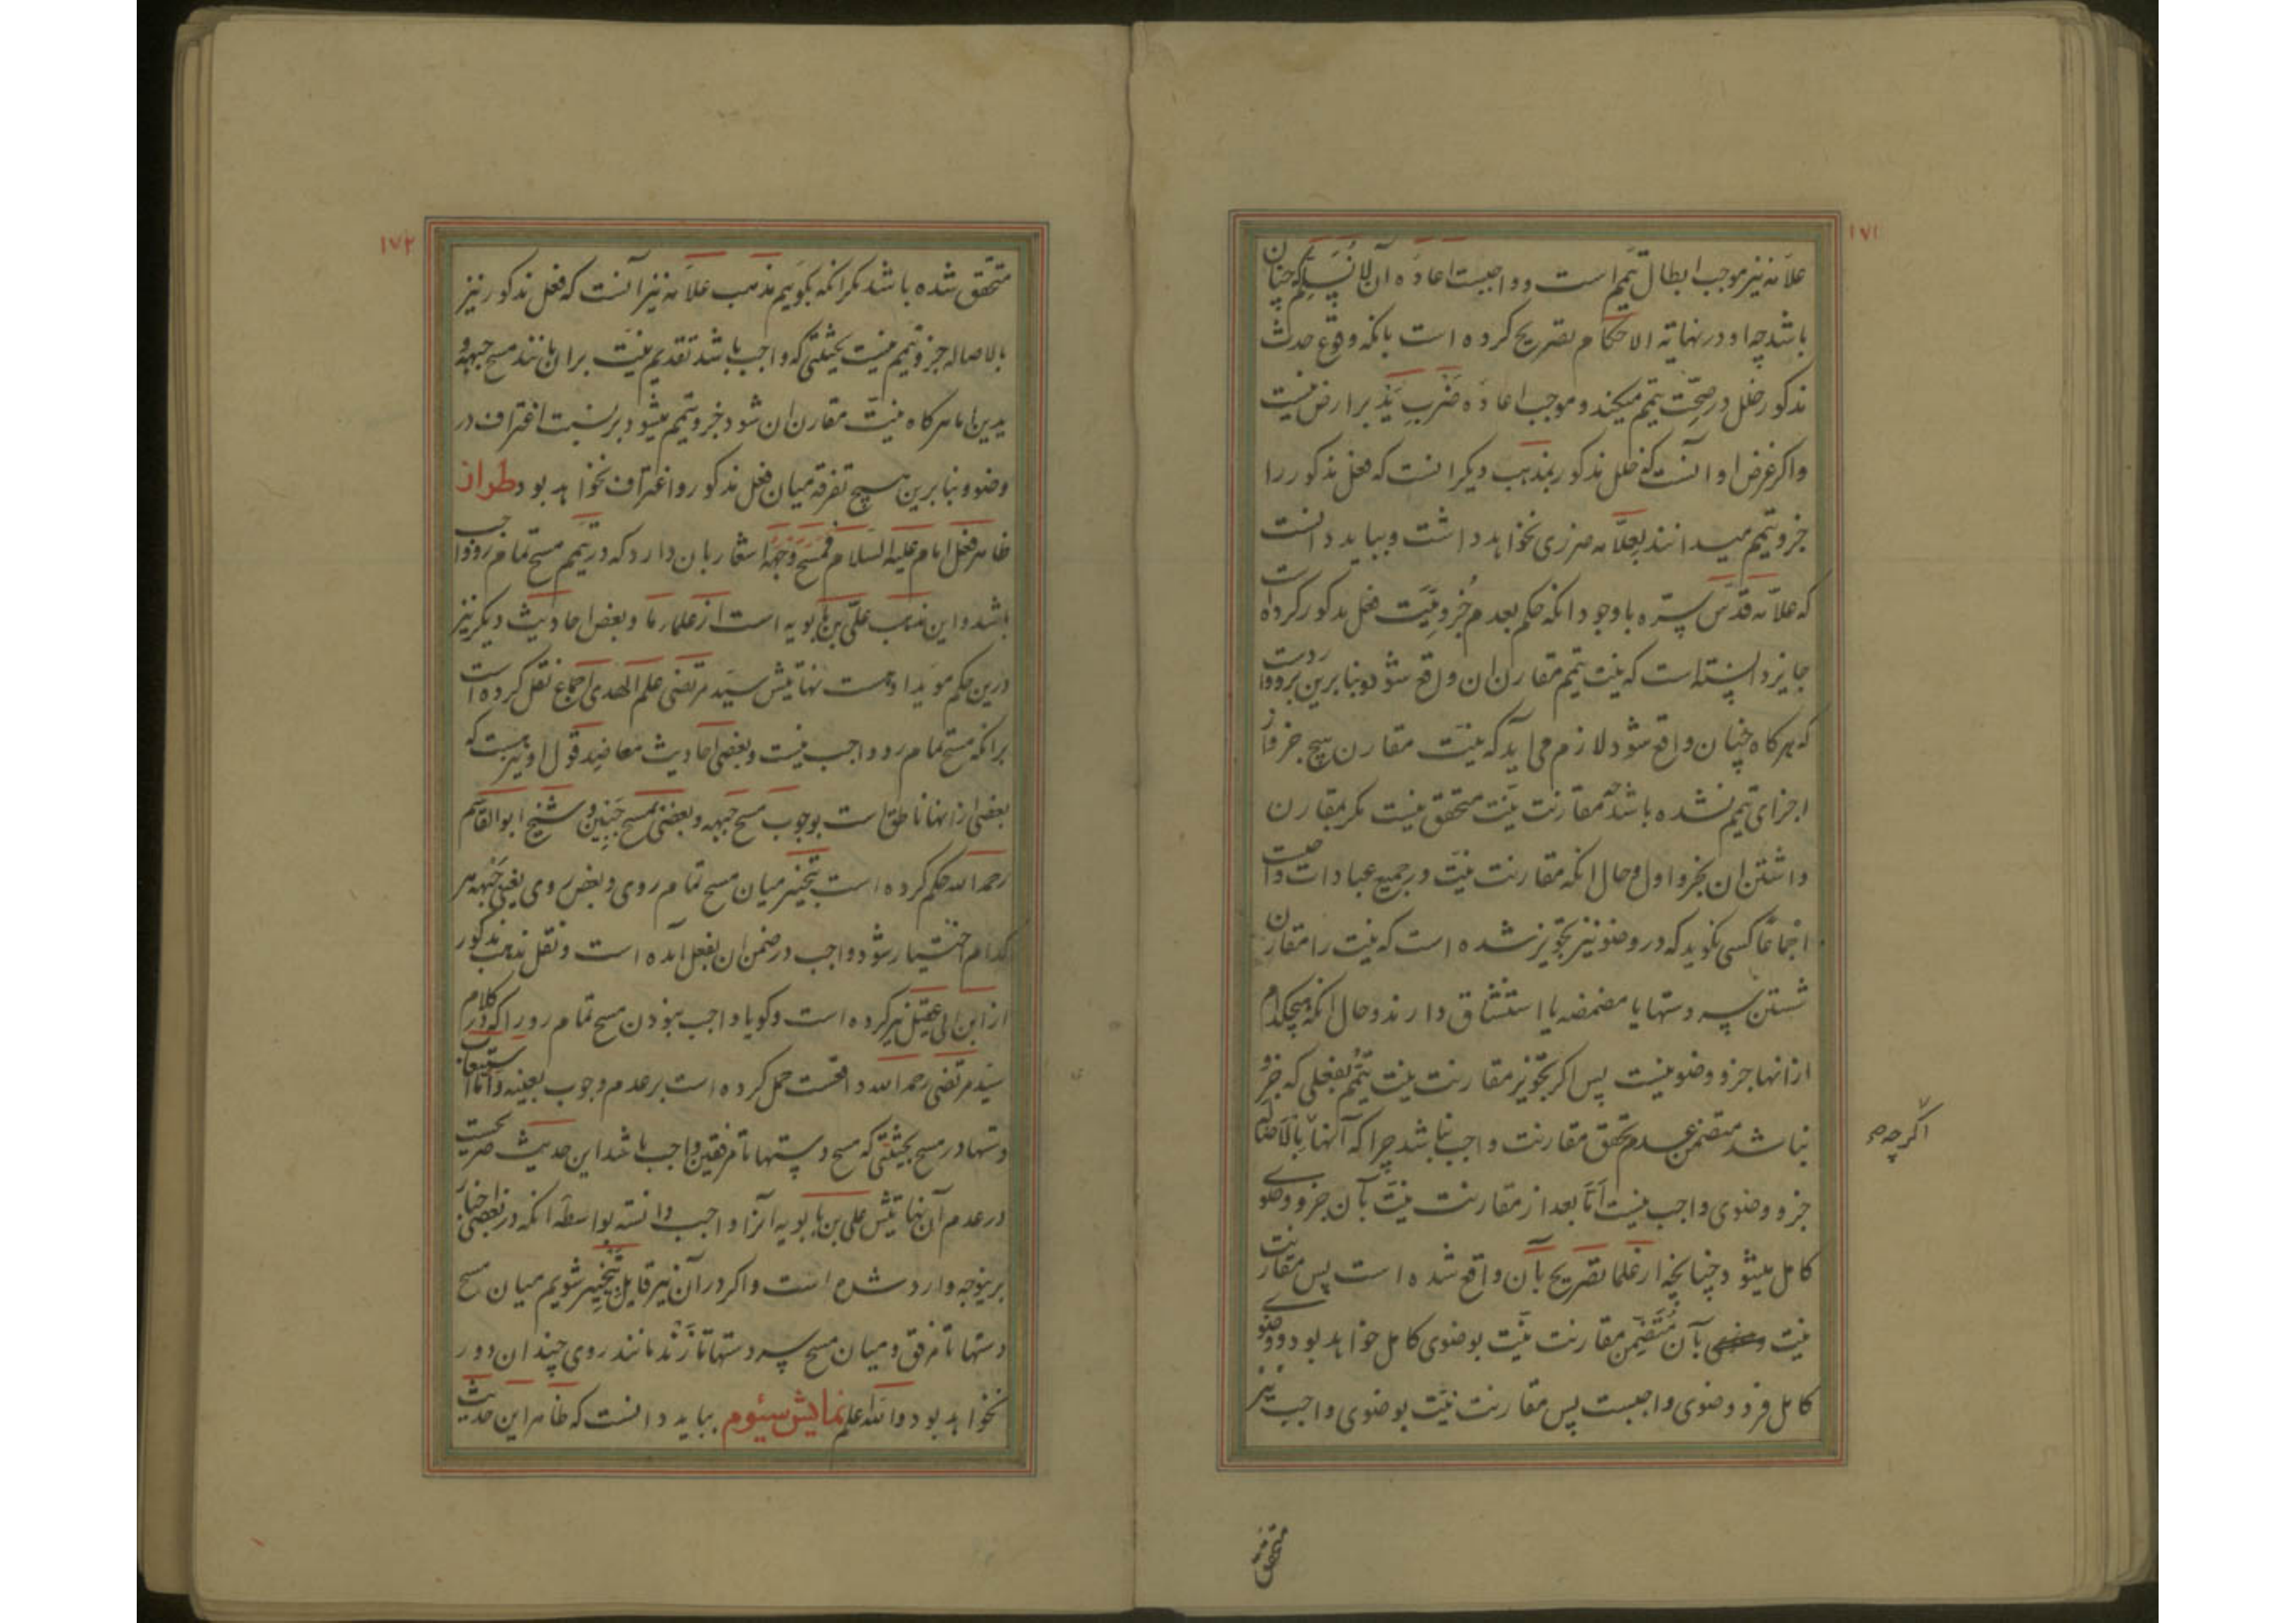 ١٧١
علامه نیز موجب ابطال تیمم است و واجبست اعاده آن لانسلم که چنان
باشد چه او در نهایة الاحکام تصریح کرده است بانکه وقوع حدث
مذکور خلل در صحّت تیمم میکند و موجب اعاده ضرب ید بر ارض نیست
واکر غرض او آنست که خلل مذکور بمذهب دیکر انست که فعل مذکور را
جزو تیمم میدانند بعلّامه ضرری نخواهد داشت و بباید دانست
که علامه قدس سره با وجود انکه حکم بعدم جزویّت فعل مذکور کرده است
جایز دانسته است که نیت تیمم مقارن ان واقع شود و بنا برین برو واردست
که هرکاه چنان واقع شود لازم می اید که نیت مقارن هیچ جزو از
اجزای تیمم نشده باشد چه مقارنت نیت متحقق نیست مکر بمقارن
داشتن ان بجزو اول و حال انکه مقارنت نیت در جمیع عبادات واجبست
اجماعا کسی نکوید که در وضو نیز تجویز شده است که نیت را مقارن
شستن سه دستها یا مضمضه یا استنشاق دارند و حال انکه هیچکدام
ازانها جزو وضو نیست پس اکر تجویز مقارنت نیت تیمم بفعلی که جزو
نباشد متضمن عدم تحقق مقارنت واجب نباشد چرا که آنها بالاصاله
اکر چه
جزو وضوی واجب نیست امّا بعد از مقارنت نیت بآن جزو وضوی
کامل میشود چنانچه از علما تصریح بآن واقع شده است پس مقارنت
نیت بآن متضمن مقارنت نیت بوضوی کامل خواهد بود و وضوی
کامل فرد وضوی واجبست پس مقارنت نیت بوضوی واجب نیز
متحقق
١٧٢
متحقق شده باشد مکر انکه بکوییم مذهب علامه نیز آنست که فعل مذکور نیز
بالاصاله جزو تیمم نیست بحیثیتی که واجب باشد تقدیم نیت بران مانند مسح جبهه و
یدین اما هرکاه نیت مقارن ان شود جزو تیمم میشود بر نسبت اغتراف در
وضو و بنا برین هیچ تفرقه میان فعل مذکور و اغتراف نخواهد بود طراز
ظاهر فعل امام علیه السلام فمسح وجهه اشعار بان دارد که در تیمم مسح تمام رو واجب
باشد و این مذهب علی بن بابویه است از علماء ما و بعض احادیث دیکر نیز
درین حکم مؤید اوست نهایتش سید مرتضی علم الهدی اجماع نقل کرده است
برانکه مسح تمام رو واجب نیست و بعضی احادیث معاضد قول او نیز هست که
بعضی ازانها ناطق است بوجوب مسح جبهه و بعضی بمسح جبین و شیخ ابو القاسم
رحمه الله حکم کرده است بتخییر میان مسح تمام روی و بعض روی یعنی جبهه هر
کدام اختیار شود واجب در ضمن ان بفعل آمده است و نقل مذهب مذکور
از ابن ابی عقیل نیز کرده است و کویا واجب نبودن مسح تمام رو را که در کلام
سید مرتضی رحمه الله واقعست حمل کرده است بر عدم وجوب بعینه و اما استیعاب
دستها در مسح بحیثیتی که مسح دستها تا مرفقین واجب باشد این حدیث صریحست
در عدم آن نهایتش علی بن بابویه آنرا واجب دانسته بواسطه آنکه در بعضی اخبار
برینوجه وارد شده است و اکر در آن نیز قایل بتخییر شویم میان مسح
دستها تا مرفق و میان مسح سه دستها تا زند مانند روی چندان دور
نخواهد بود والله اعلم نمایش سیّوم بباید دانست که ظاهر این حدیث